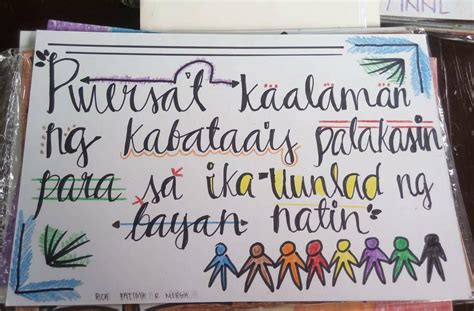 ANNE
Puwersa't kaalaman
ng kabataa'y palakasin
para sa ika-uunlad ng
bayan natin